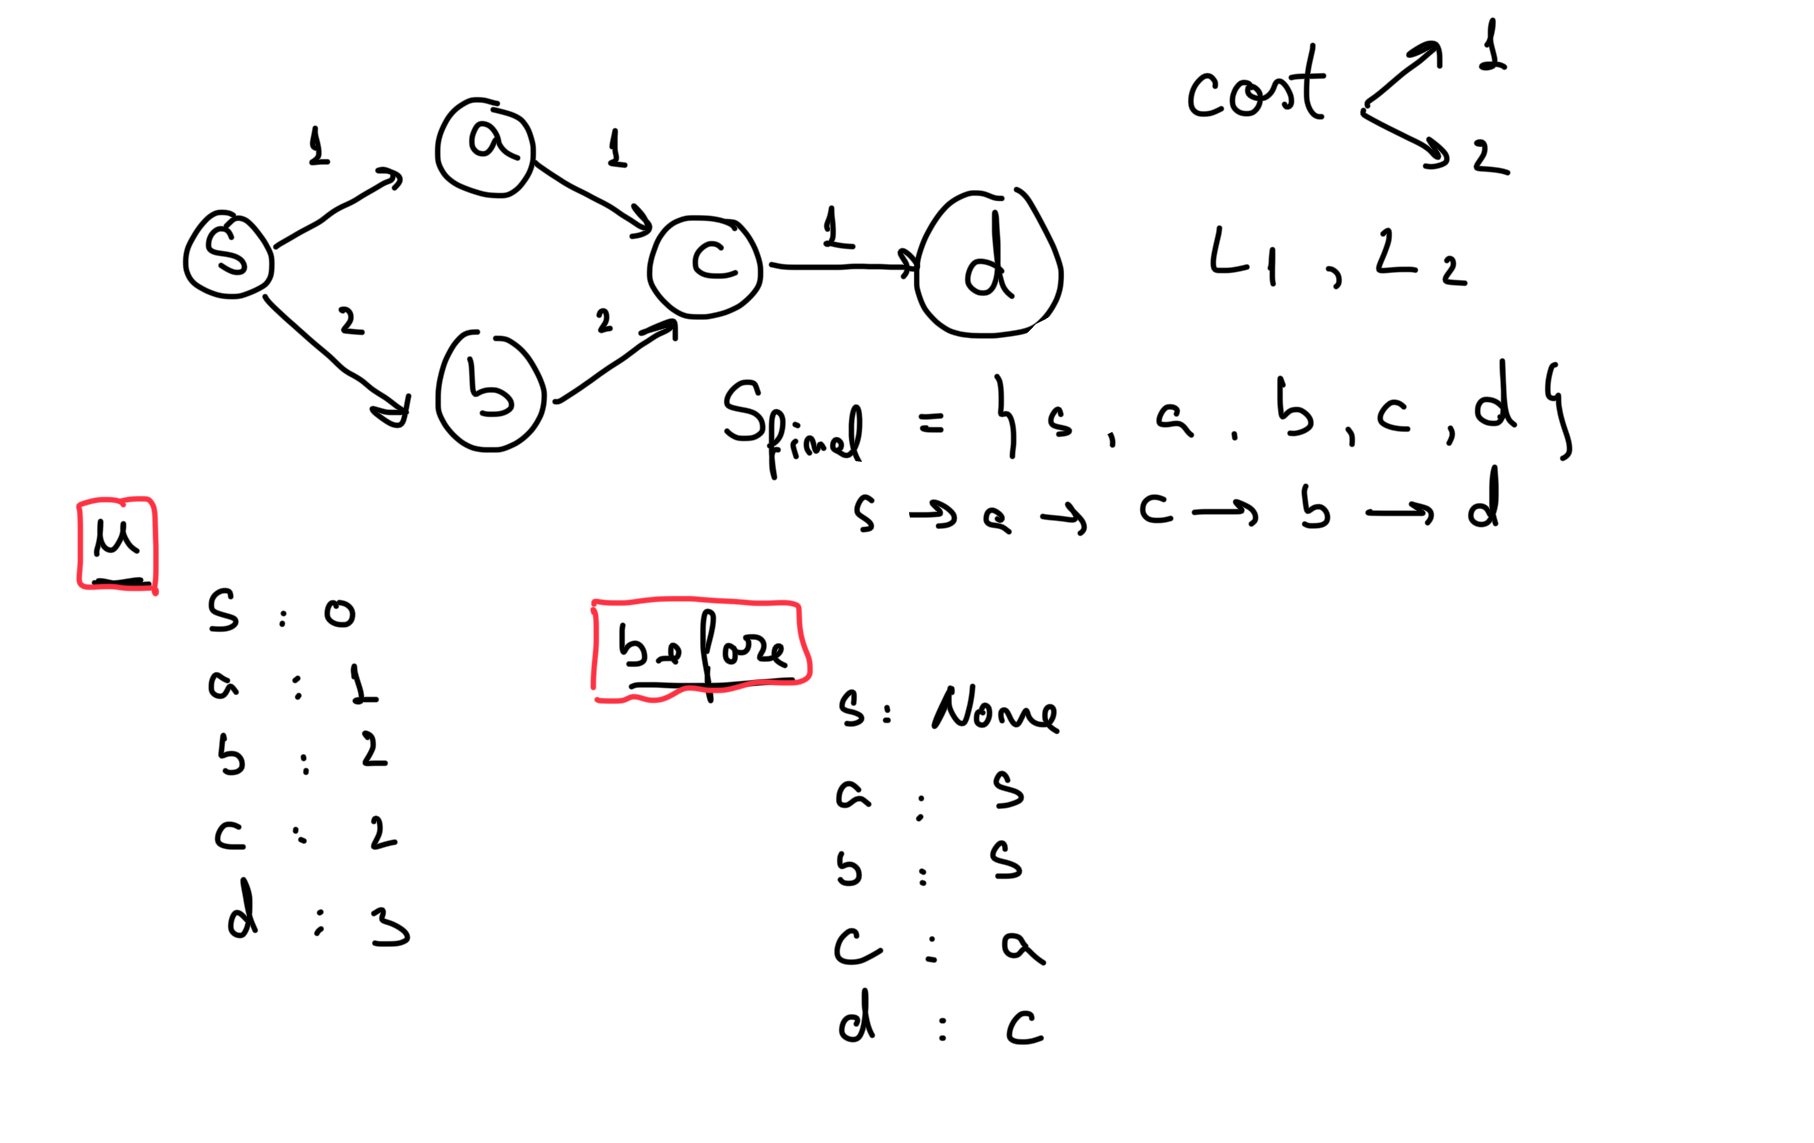 cost 1
2
1 a 1
s c 1 d
2 b 2
L1, L2
Sfinal = { s, a, b, c, d }
s → a → c → b → d
μ
s : 0
a : 1
b : 2
c : 2
d : 3
before
s: None
a : s
b : s
c : a
d : c